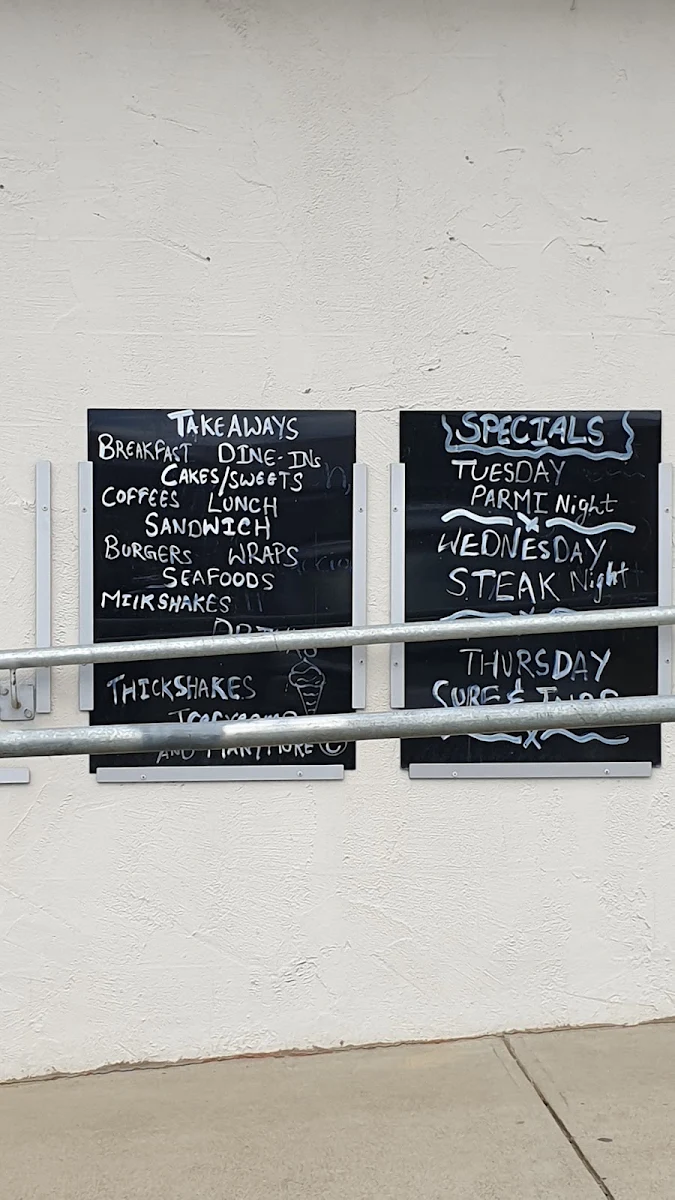 TAKEAWAYS
BREAKFAST DINE-INs
CAKES/SWEETS
COFFEES LUNCH
SANDWICH
BURGERS WRAPS
SEAFOODS
MILKSHAKES
THICKSHAKES
AND MANY MORE
SPECIALS
TUESDAY
PARMI Night
WEDNESDAY
STEAK Night
THURSDAY
SURF &